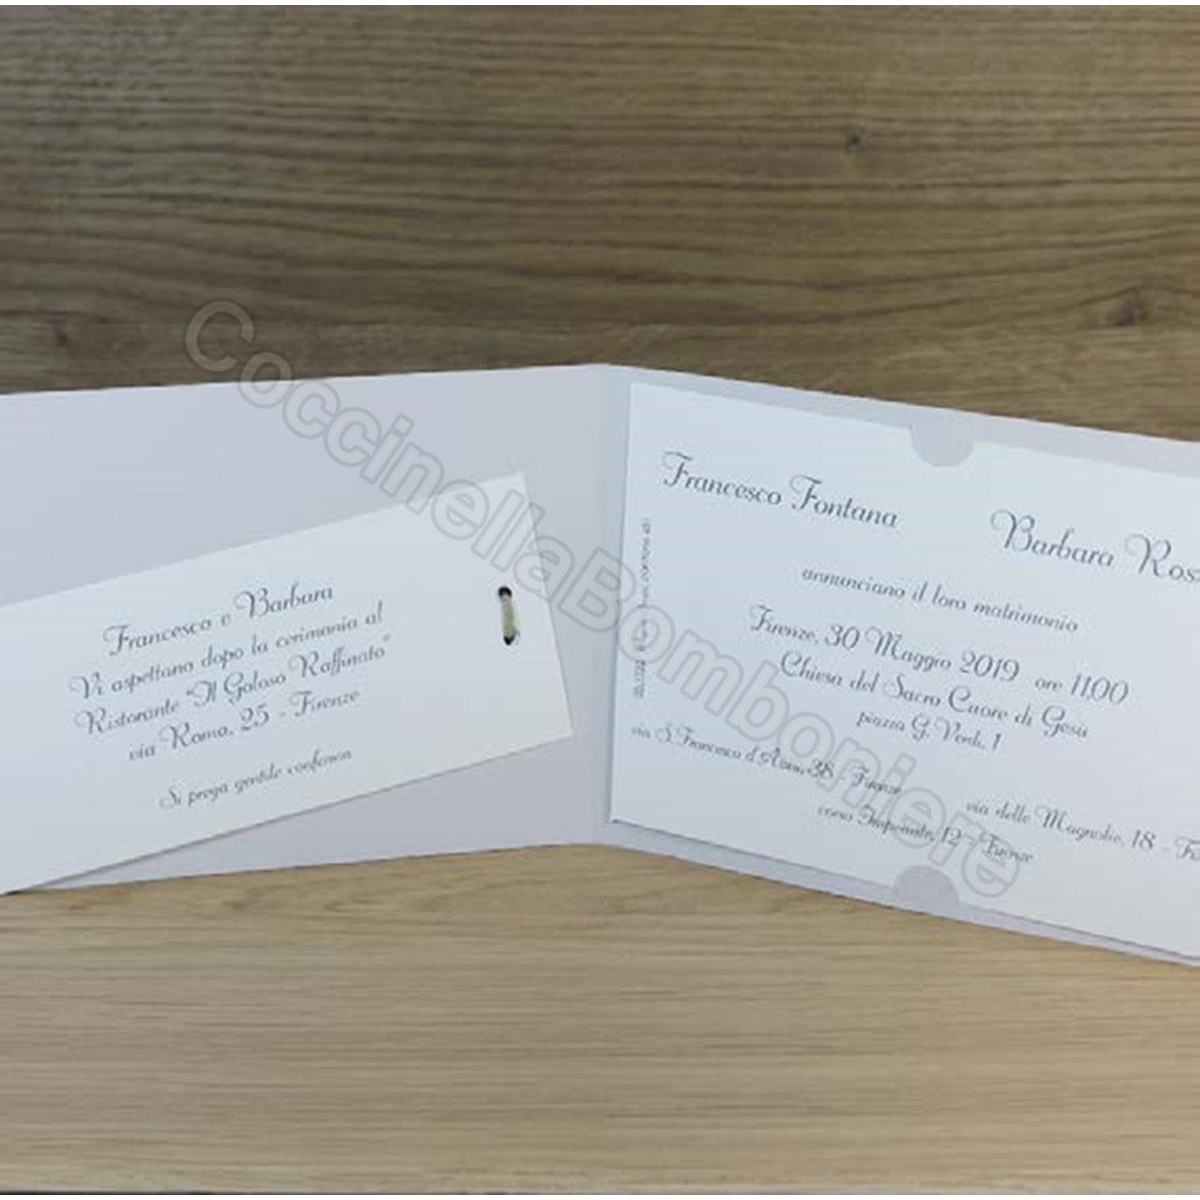 Francesco e Barbara
Vi aspettano dopo la cerimonia al
Ristorante "Il Goloso Raffinato"
via Roma, 25 - Firenze
Si prega gentile conferma
Francesco Fontana Barbara Ros
annunciano il loro matrimonio
Firenze, 30 Maggio 2019 ore 11,00
Chiesa del Sacro Cuore di Gesù
piazza G. Verdi, 1
via S. Francesco d'Assisi, 38 - Firenze
via delle Magnolie, 18 - Fi
corso 12 - Firenze
CoccinellaBomboniere